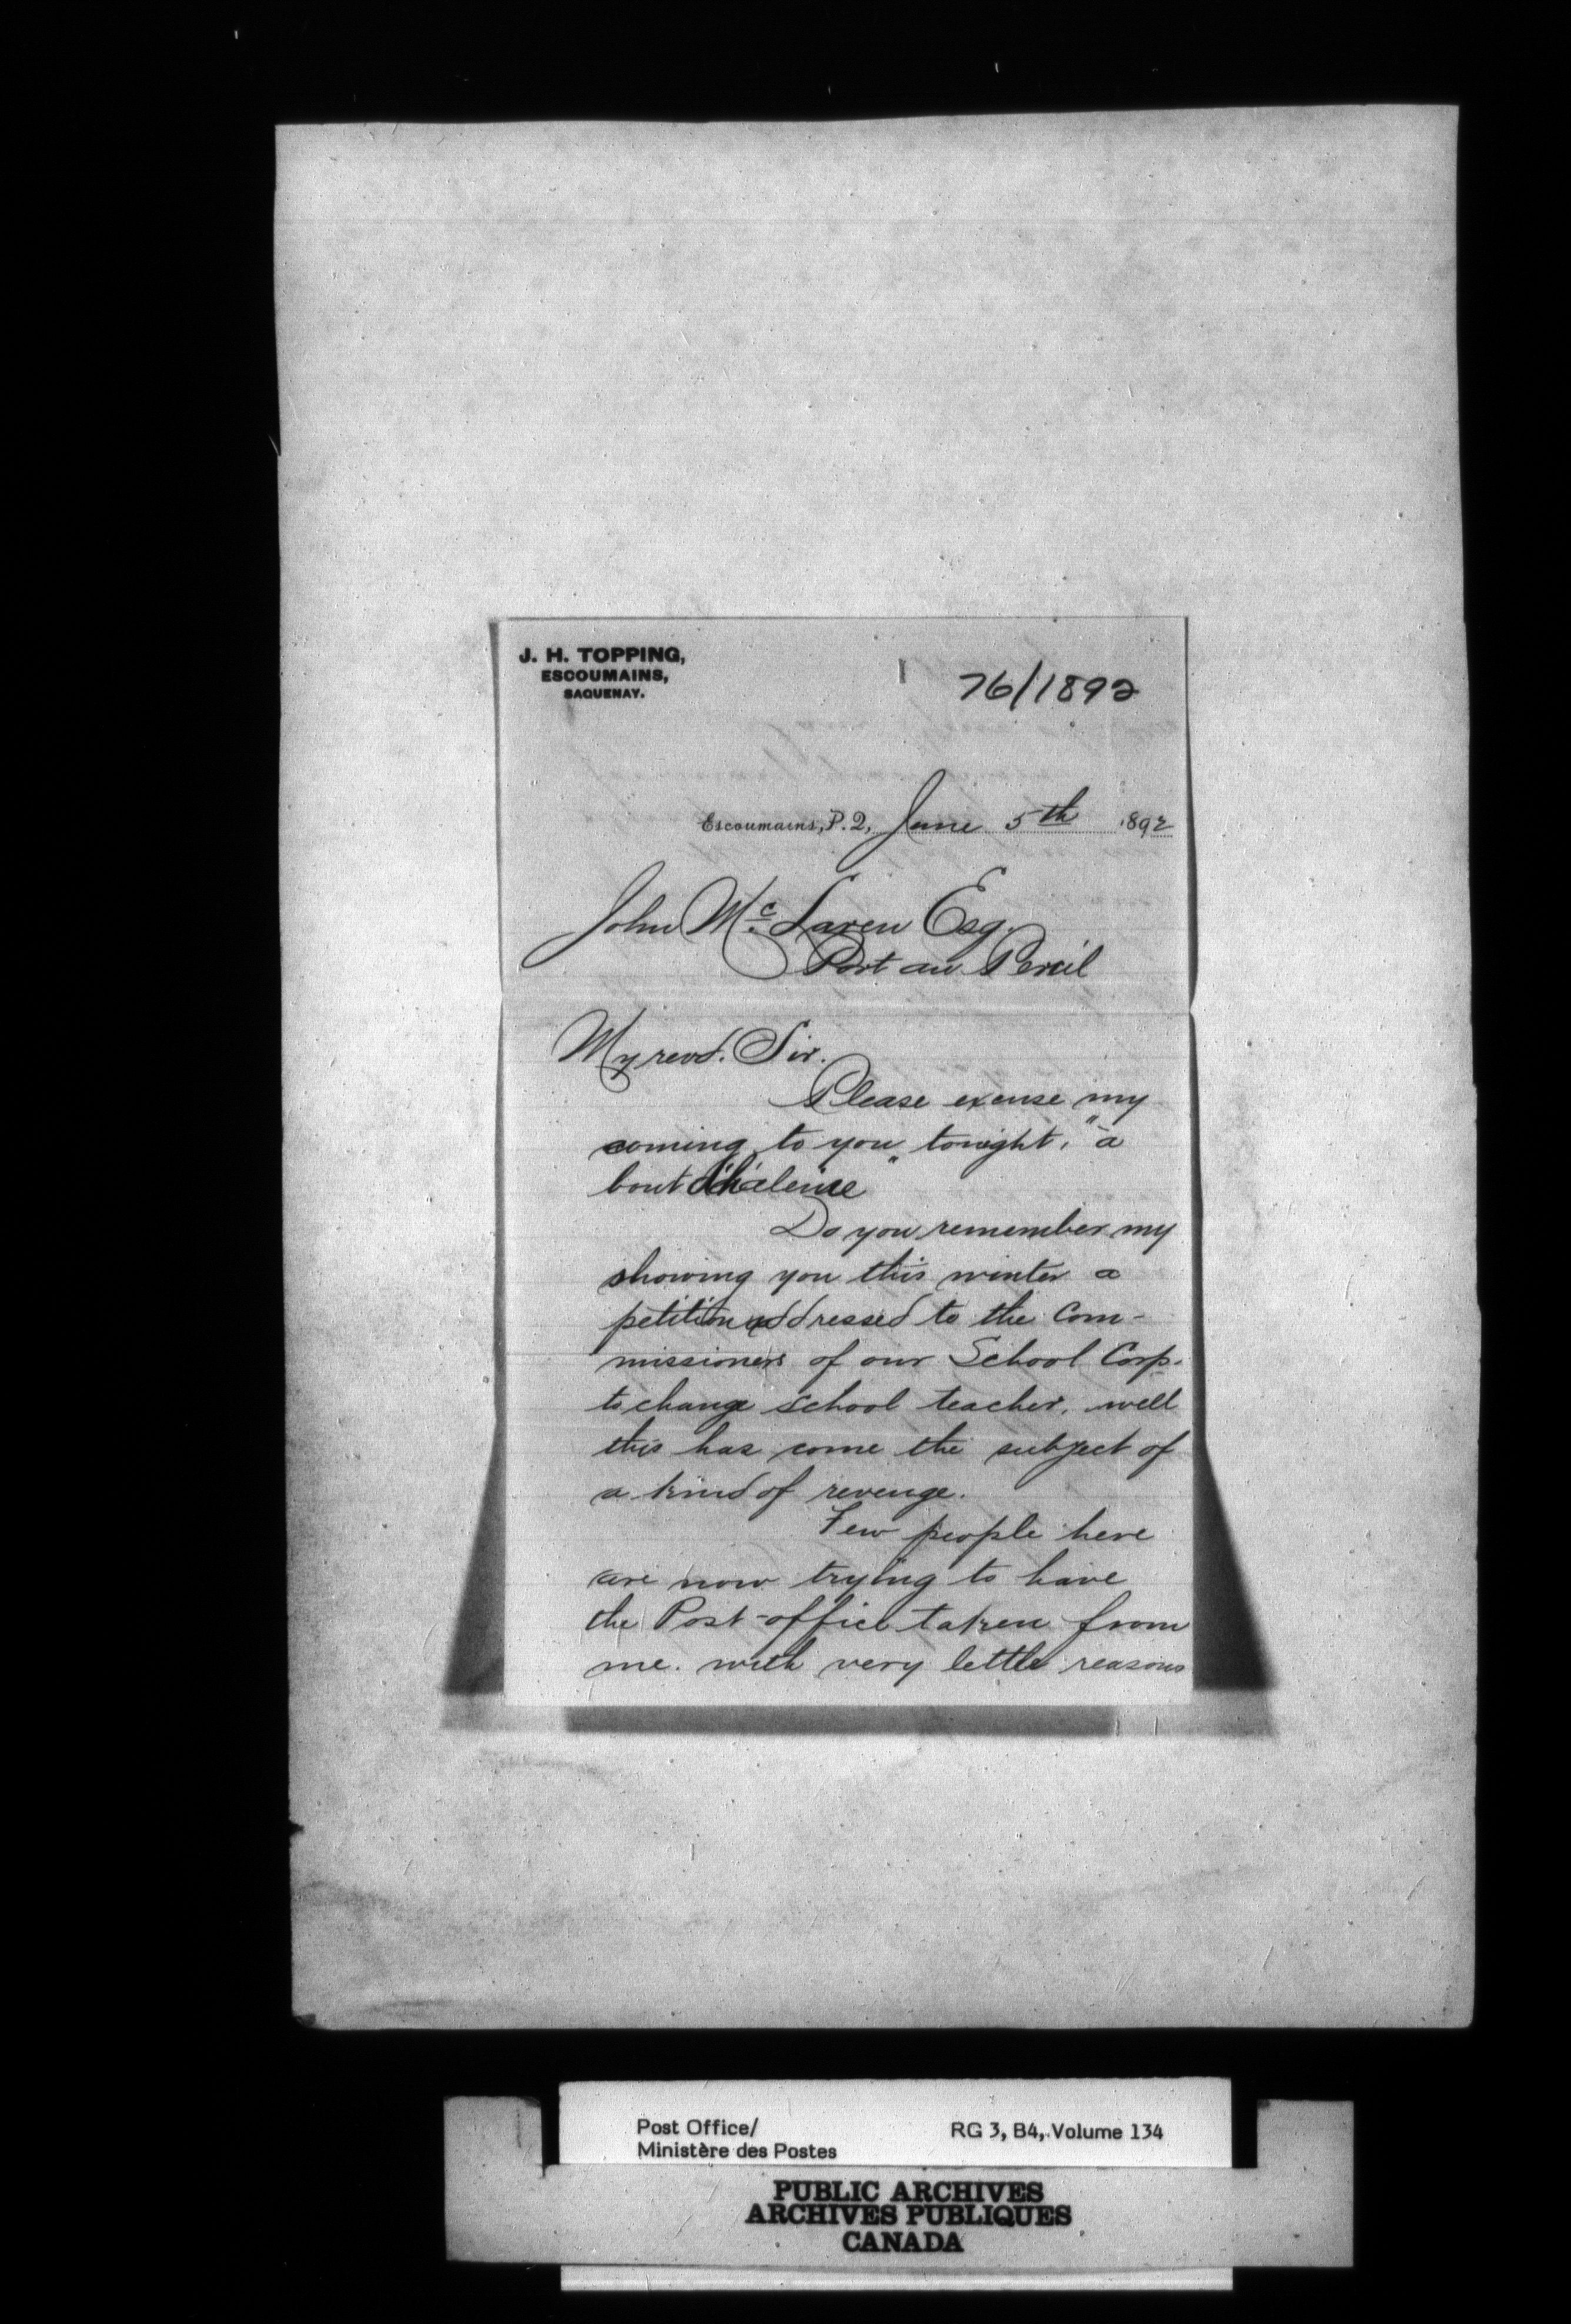 J. H. TOPPING,
ESCOUMAINS,
SAGUENAY.
76/1892
Escoumains, P. Q, June 5th 1892
John Mc Laren Esq.
Port au Persil
My revd. Sir.
Please excuse my
coming to you tonight, "a
bout d'haleine"
Do you remember my
showing you this winter a
petition addressed to the Com-
missioners of our School Corp.
to change school teacher, well
this has come the subject of
a kind of revenge.
Few people here
are now trying to have
the Post-office taken from
me. with very little reasons
Post Office/
Ministère des Postes
RG 3, B4, Volume 134
PUBLIC ARCHIVES
ARCHIVES PUBLIQUES
CANADA